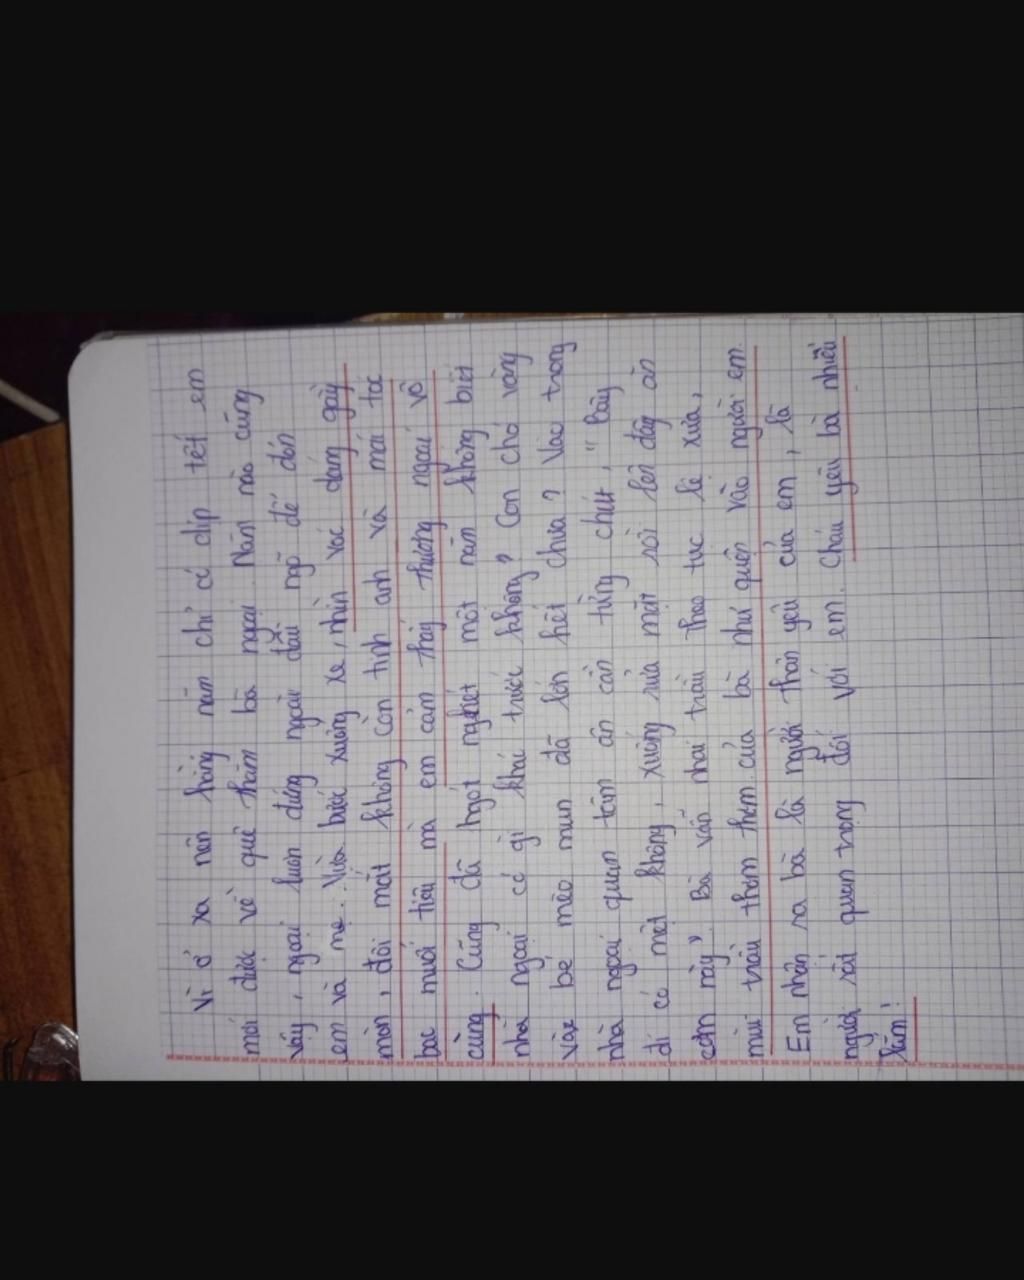 Vì ở xa nên hàng năm chỉ có dịp tết em
mới được về quê thăm bà ngoại. Năm nào cũng
vậy, ngoại luôn đứng ngoài đầu ngõ để đón
em và mẹ. Vừa bước xuống xe, nhìn vóc dáng gầy
mòn, đôi mắt không còn tinh anh và mái tóc
bạc muối tiêu mà em cảm thấy thương ngoại vô
cùng. Cũng đã ngót nghét một năm không biết
nhà ngoại có gì khác trước không? Con chó vàng
và bé mèo mun đã lớn hết chưa? Vào trong
nhà ngoại quan tâm ân cần từng chút, "Bây
đi có mệt không, xuống rửa mặt rồi lên đây ăn
cơm này". Bà vẫn nhai trầu theo tục lệ xưa,
mùi trầu thơm thơm của bà như quện vào người em.
Em nhận ra bà là người thân yêu của em, là
người rất quan trọng đối với em. Cháu yêu bà nhiều
lắm!